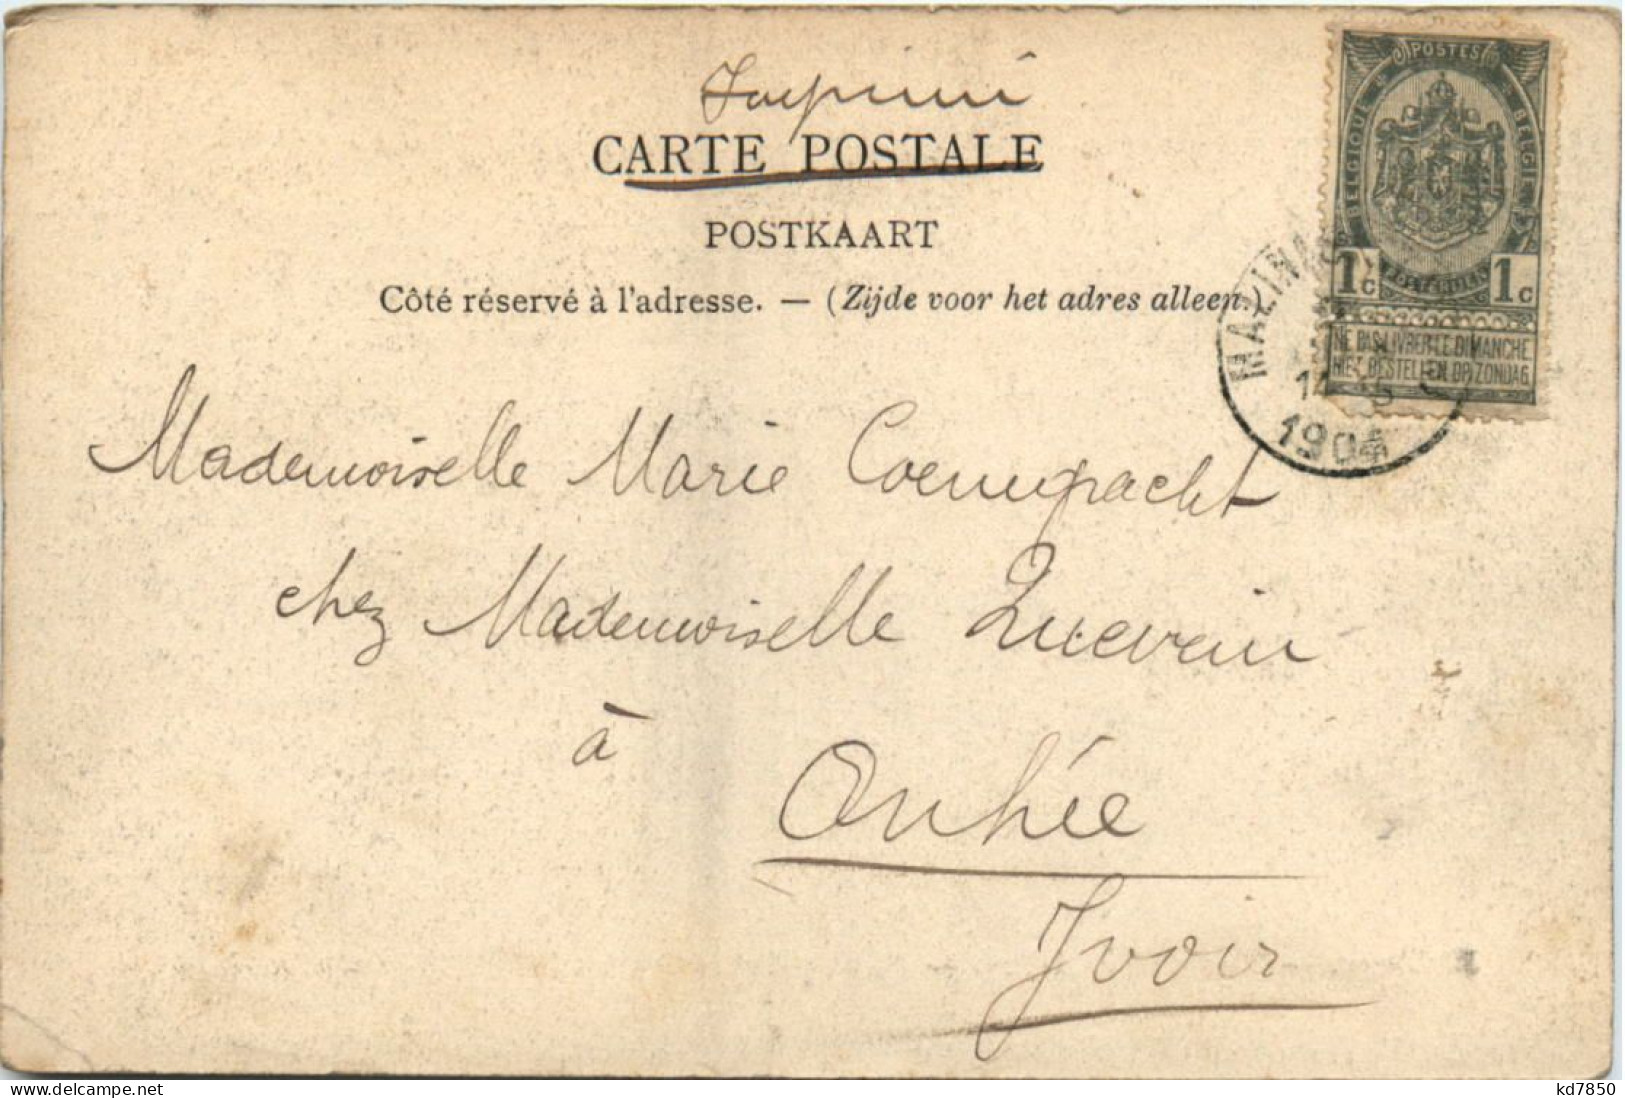 Imprimé
CARTE POSTALE
POSTKAART
Côté réservé à l'adresse. — (Zijde voor het adres alleen.)
POSTES
BELGIQUE
BELGIE
1c 1c
NE PAS LIVRER LE DIMANCHE
NIET BESTELLEN OP ZONDAG
MALINES
1904
Mademoiselle Marie
chez Mademoiselle
à
Onhée
Yvoir
www.delcampe.net
kd7850